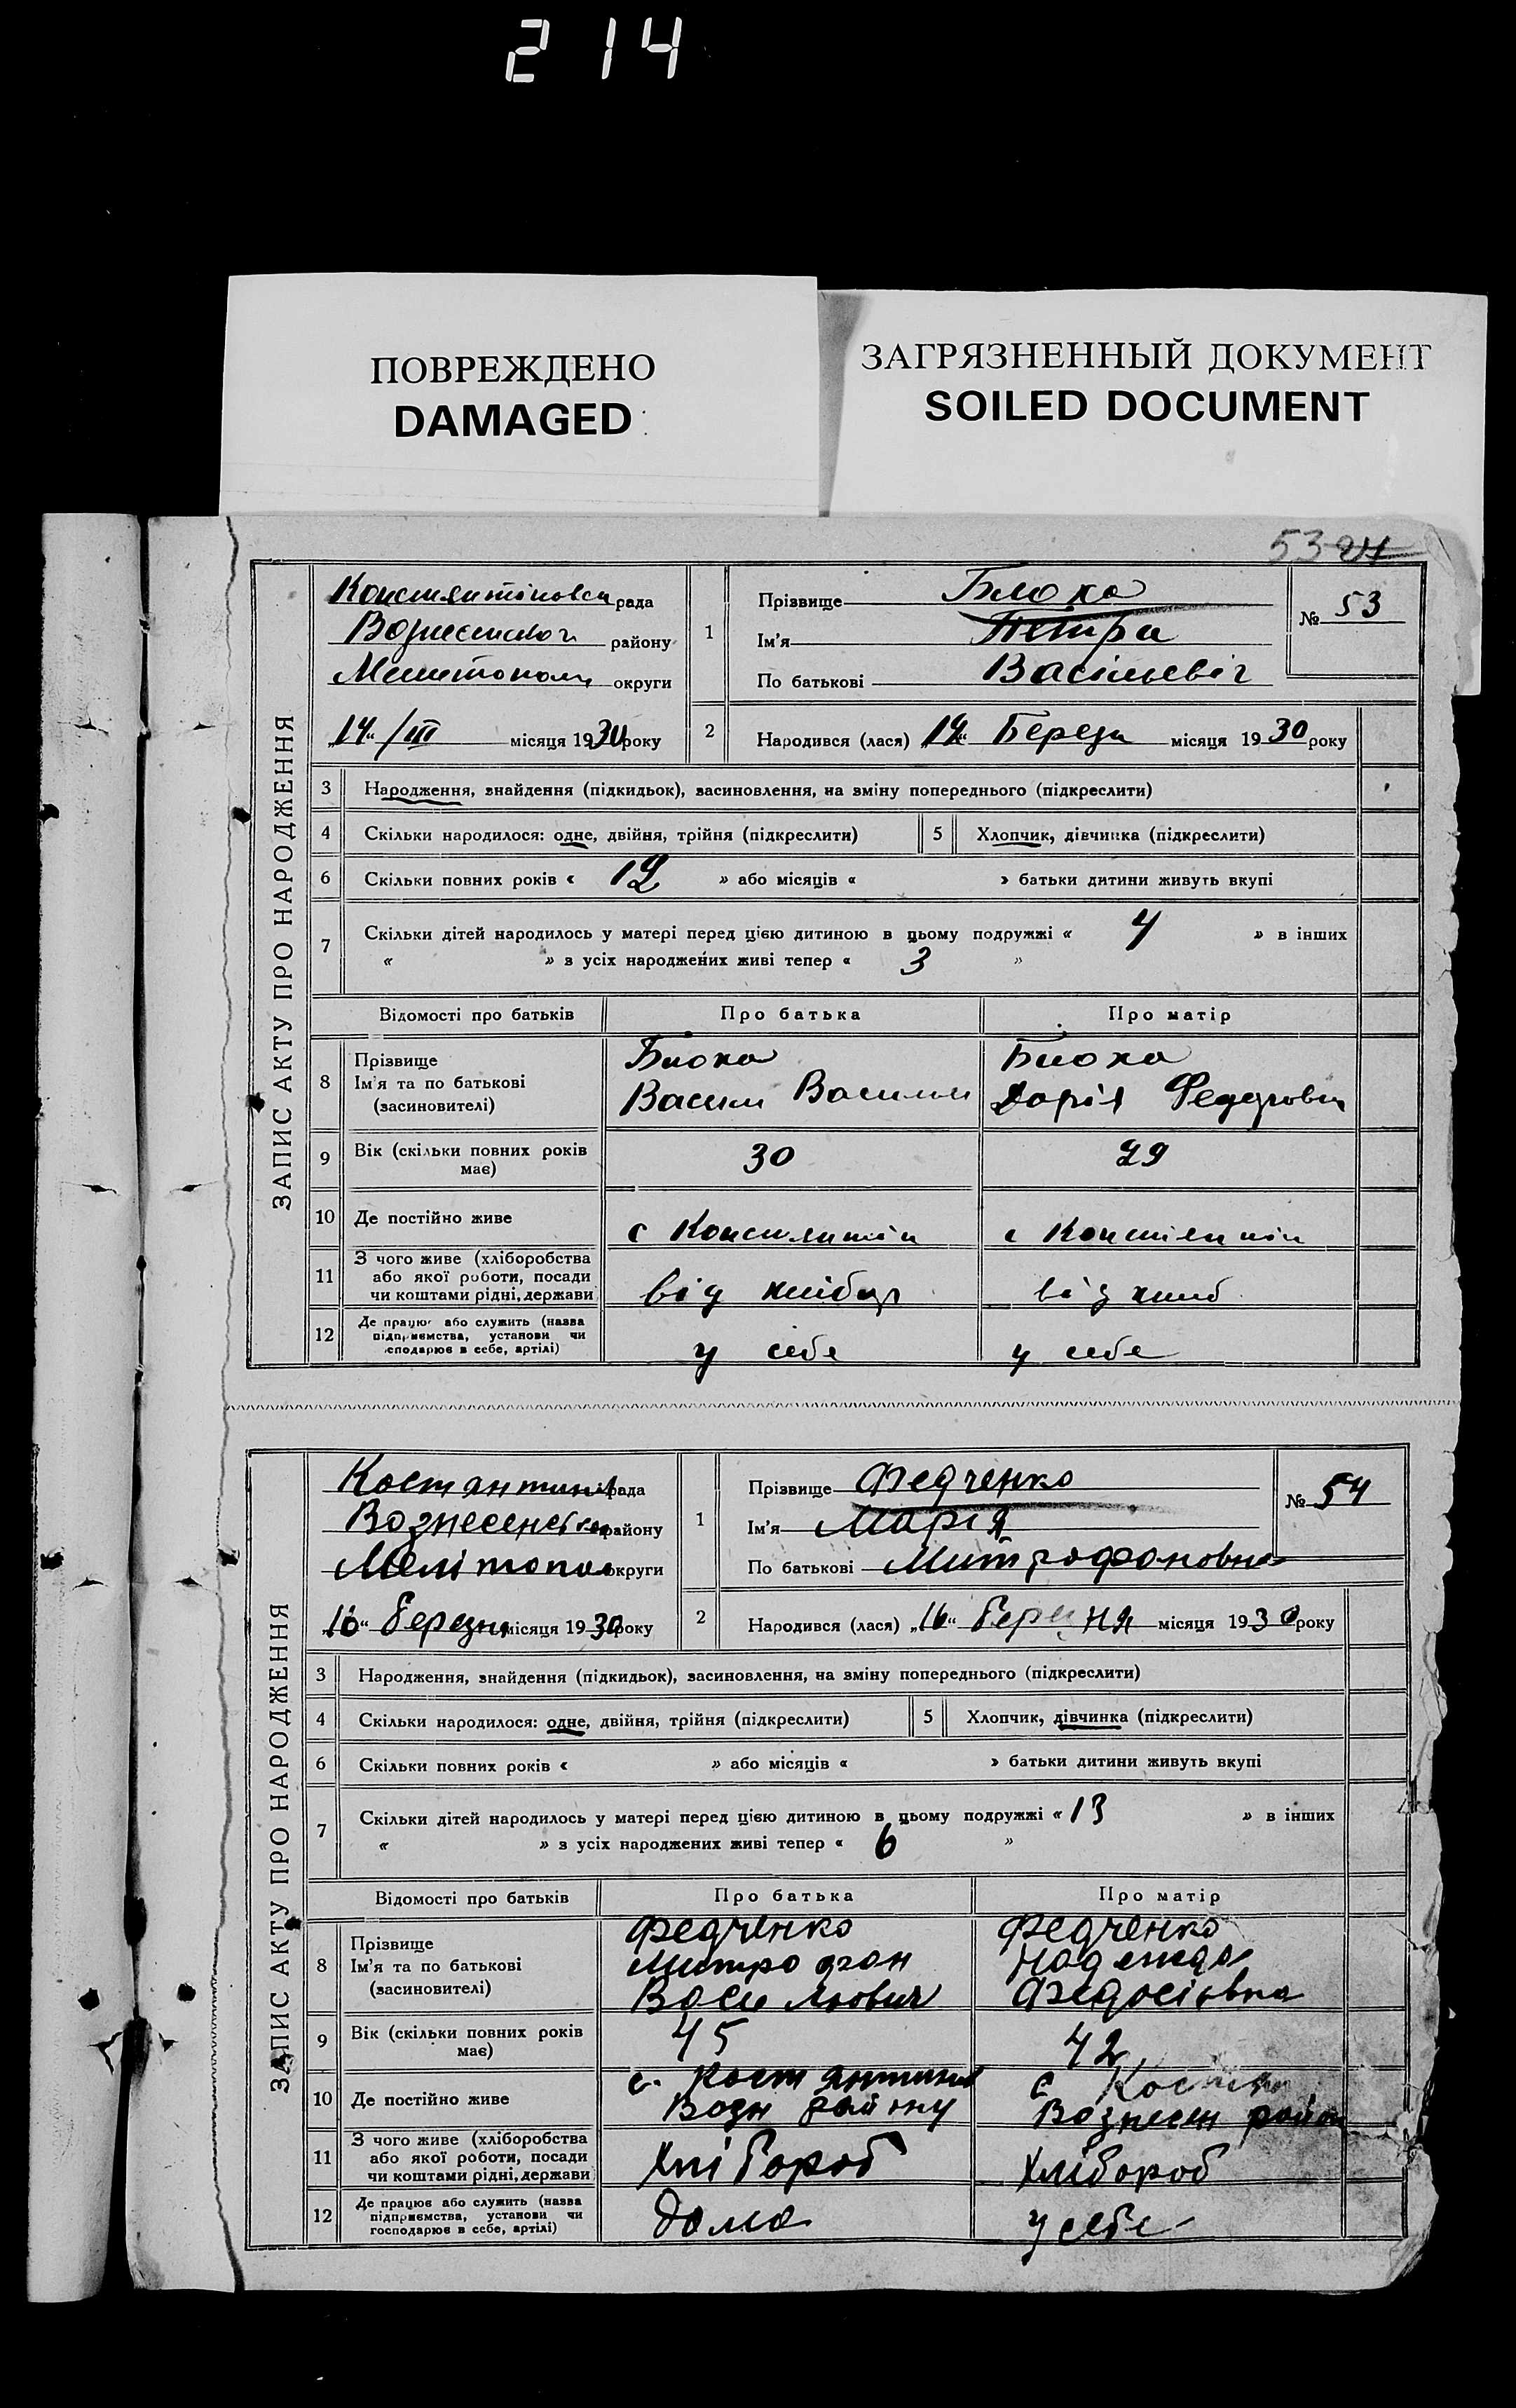 214
ПОВРЕЖДЕНО
DAMAGED
ЗАГРЯЗНЕННЫЙ ДОКУМЕНТ
SOILED DOCUMENT
53
ЗАПИС АКТУ ПРО НАРОДЖЕННЯ
рада
району
округи
"14" /III місяця 1930 року
1
Прізвище Блоха
Ім'я Петра
По батькові Васільевіч
№ 53
2
Народився (лася) "14" Березн місяця 1930 року
3 Народження, знайдення (підкидьок), засиновлення, на зміну попереднього (підкреслити)
4 Скільки народилося: одне, двійня, трійня (підкреслити)
5 Хлопчик, дівчинка (підкреслити)
6 Скільки повних років « 12 » або місяців « » батьки дитини живуть вкупі
7 Скільки дітей народилось у матері перед цією дитиною в цьому подружжі « 4 » в інших
« » з усіх народжених живі тепер « 3 »
Відомості про батьків Про батька Про матір
8 Прізвище
Ім'я та по батькові
(засиновителі)
Блоха
Васили
Блоха
Дарія Феддровн
9 Вік (скільки повних років
має)
30 29
10 Де постійно живе с Констянтін с Констянтін
11 З чого живе (хліборобства
або якої роботи, посади
чи коштами рідні, держави
від хлібор від хлиб
12 Де працює або служить (назва
підприємства, установи чи
господарює в себе, артілі)
у себе у себе
ЗАПИС АКТУ ПРО НАРОДЖЕННЯ
Костянтинів рада
Вознесенськ району
Мелітопол округи
"16" березня місяця 1930 року
1
Прізвище Федченко
Ім'я Марія
По батькові Митрофановна
№ 54
2
Народився (лася) "16" березня місяця 1930 року
3 Народження, знайдення (підкидьок), засиновлення, на зміну попереднього (підкреслити)
4 Скільки народилося: одне, двійня, трійня (підкреслити)
5 Хлопчик, дівчинка (підкреслити)
6 Скільки повних років « » або місяців « » батьки дитини живуть вкупі
7 Скільки дітей народилось у матері перед цією дитиною в цьому подружжі « 13 » в інших
« » з усіх народжених живі тепер « 6 »
Відомості про батьків Про батька Про матір
8 Прізвище
Ім'я та по батькові
(засиновителі)
Федченко
Митрофан
Васильович
Федченко
Надежда
Федосіївна
9 Вік (скільки повних років
має)
45 42
10 Де постійно живе
с. Костянтинів
Возн району
с
Вознесен район
11 З чого живе (хліборобства
або якої роботи, посади
чи коштами рідні, держави
Хлібороб Хлібороб
12 Де працює або служить (назва
підприємства, установи чи
господарює в себе, артілі)
дома у себе